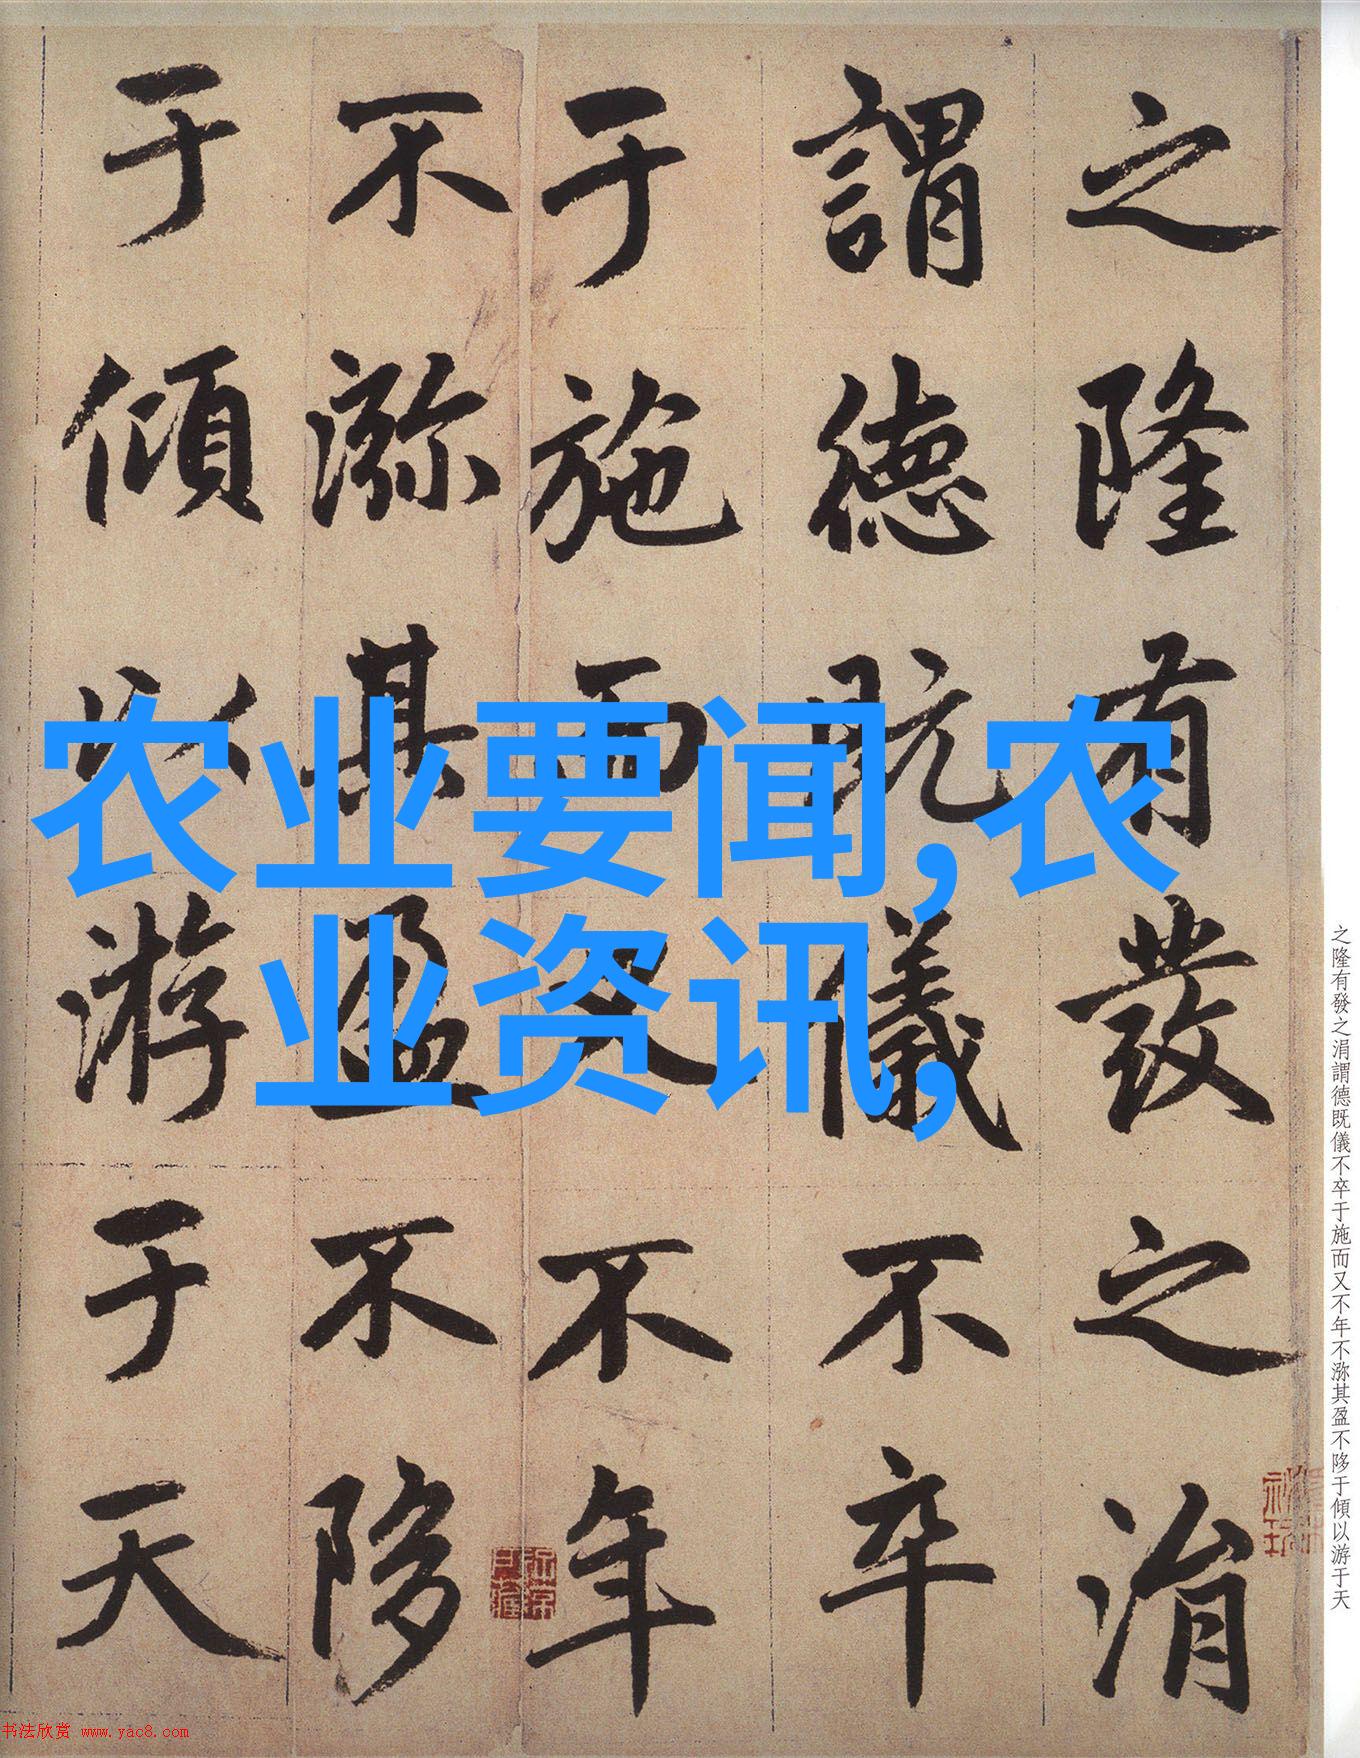 之隆有發之涓
謂德既儀不卒
于施而又不年
不游其盈不陊
于傾以游于天
农业要闻,农
业资讯,
之隆有發之涓謂德既儀不卒于施而又不年不游其盈不陊于傾以游于天
书法欣赏 www.yac8.com